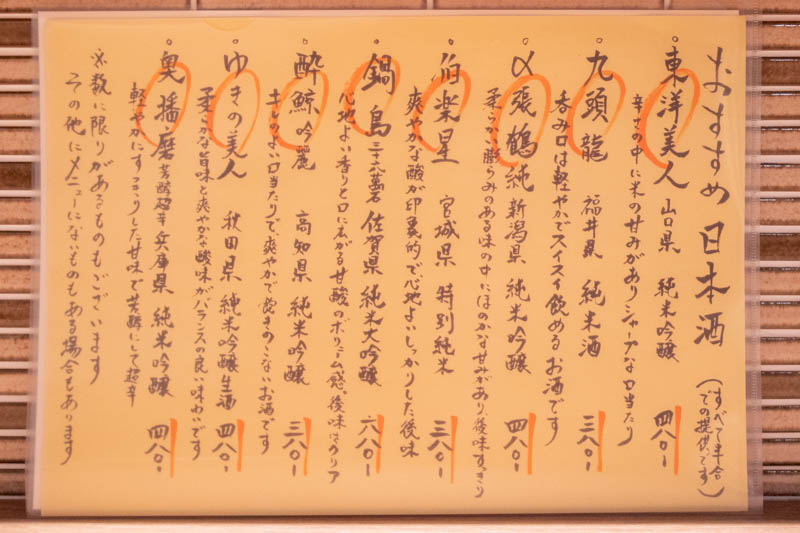 おすすめ日本酒
(すべて半合
での提供です)
東洋美人 山口県 純米吟醸 四八〇-
辛さの中に米の甘みがありシャープな口当たり
九頭龍 福井県 純米酒 三八〇-
呑み口は軽やかでスイスイ飲めるお酒です
〆張鶴 純 新潟県 純米吟醸 四八〇-
柔らかい膨らみのある味の中にほのかな甘みがあり後味すっきり
伯楽星 宮城県 特別純米 三八〇-
爽やかな酸が印象的で心地よいしっかりした後味
鍋島 三十六萬石 佐賀県 純米大吟醸 六八〇-
心地よい香りと口に広がる甘酸のボリューム感、後味はクリア
酔鯨 吟麗 高知県 純米吟醸 三八〇-
キレのよい口当たりで、爽やかで飽きのこないお酒です
ゆきの美人 秋田県 純米吟醸生酒 四八〇-
柔らかな旨味と爽やかな酸味がバランスの良い味わいです
奥播磨 芳醇超辛 兵庫県 純米吟醸 四八〇-
軽やかにすっきりした甘味で芳醇にして超辛
※数に限りがあるものもございます
その他にメニューにないものもある場合もあります